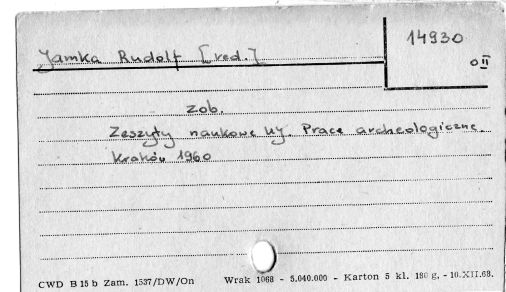 14930
O II
Jamka Rudolf [red.]
zob.
Zeszyty naukowe UJ. Prace archeologiczne.
Kraków 1960
CWD B 15 b Zam. 1537/DW/On Wrak 1068 - 5.040.000 - Karton 5 kl. 180 g, - 10.XII.68.